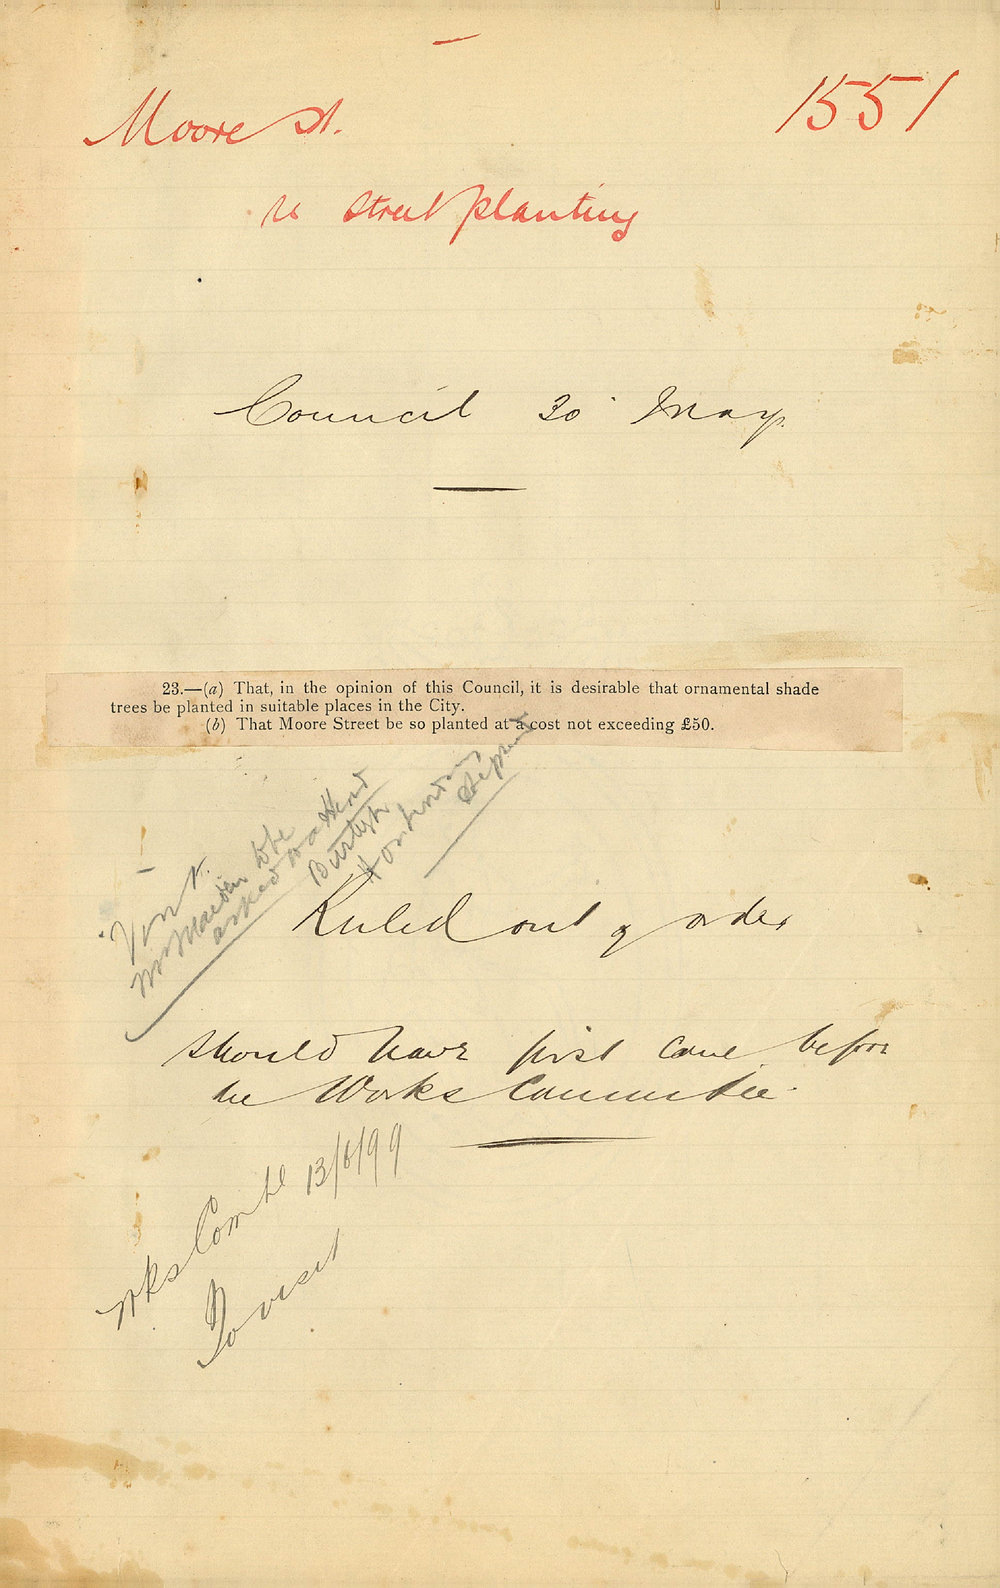 Moore St.
1551
re street planting
Council 30 May.
23.—(a) That, in the opinion of this Council, it is desirable that ornamental shade
trees be planted in suitable places in the City.
(b) That Moore Street be so planted at a cost not exceeding £50.
Mr Maiden to be
asked to attend
Ruled out of order
should have first come before
the Works Committee.
Wks Comtee 13/6/99
To visit